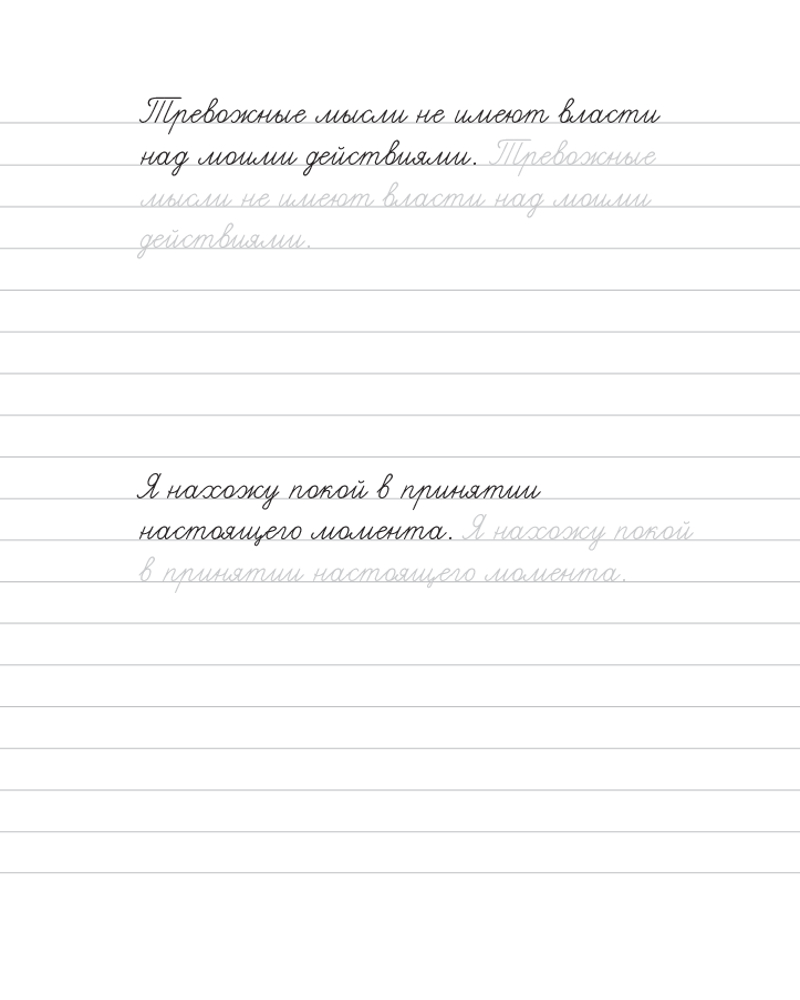 Тревожные мысли не имеют власти
над моими действиями. Тревожные
мысли не имеют власти над моими
действиями.
Я нахожу покой в принятии
настоящего момента. Я нахожу покой
в принятии настоящего момента.